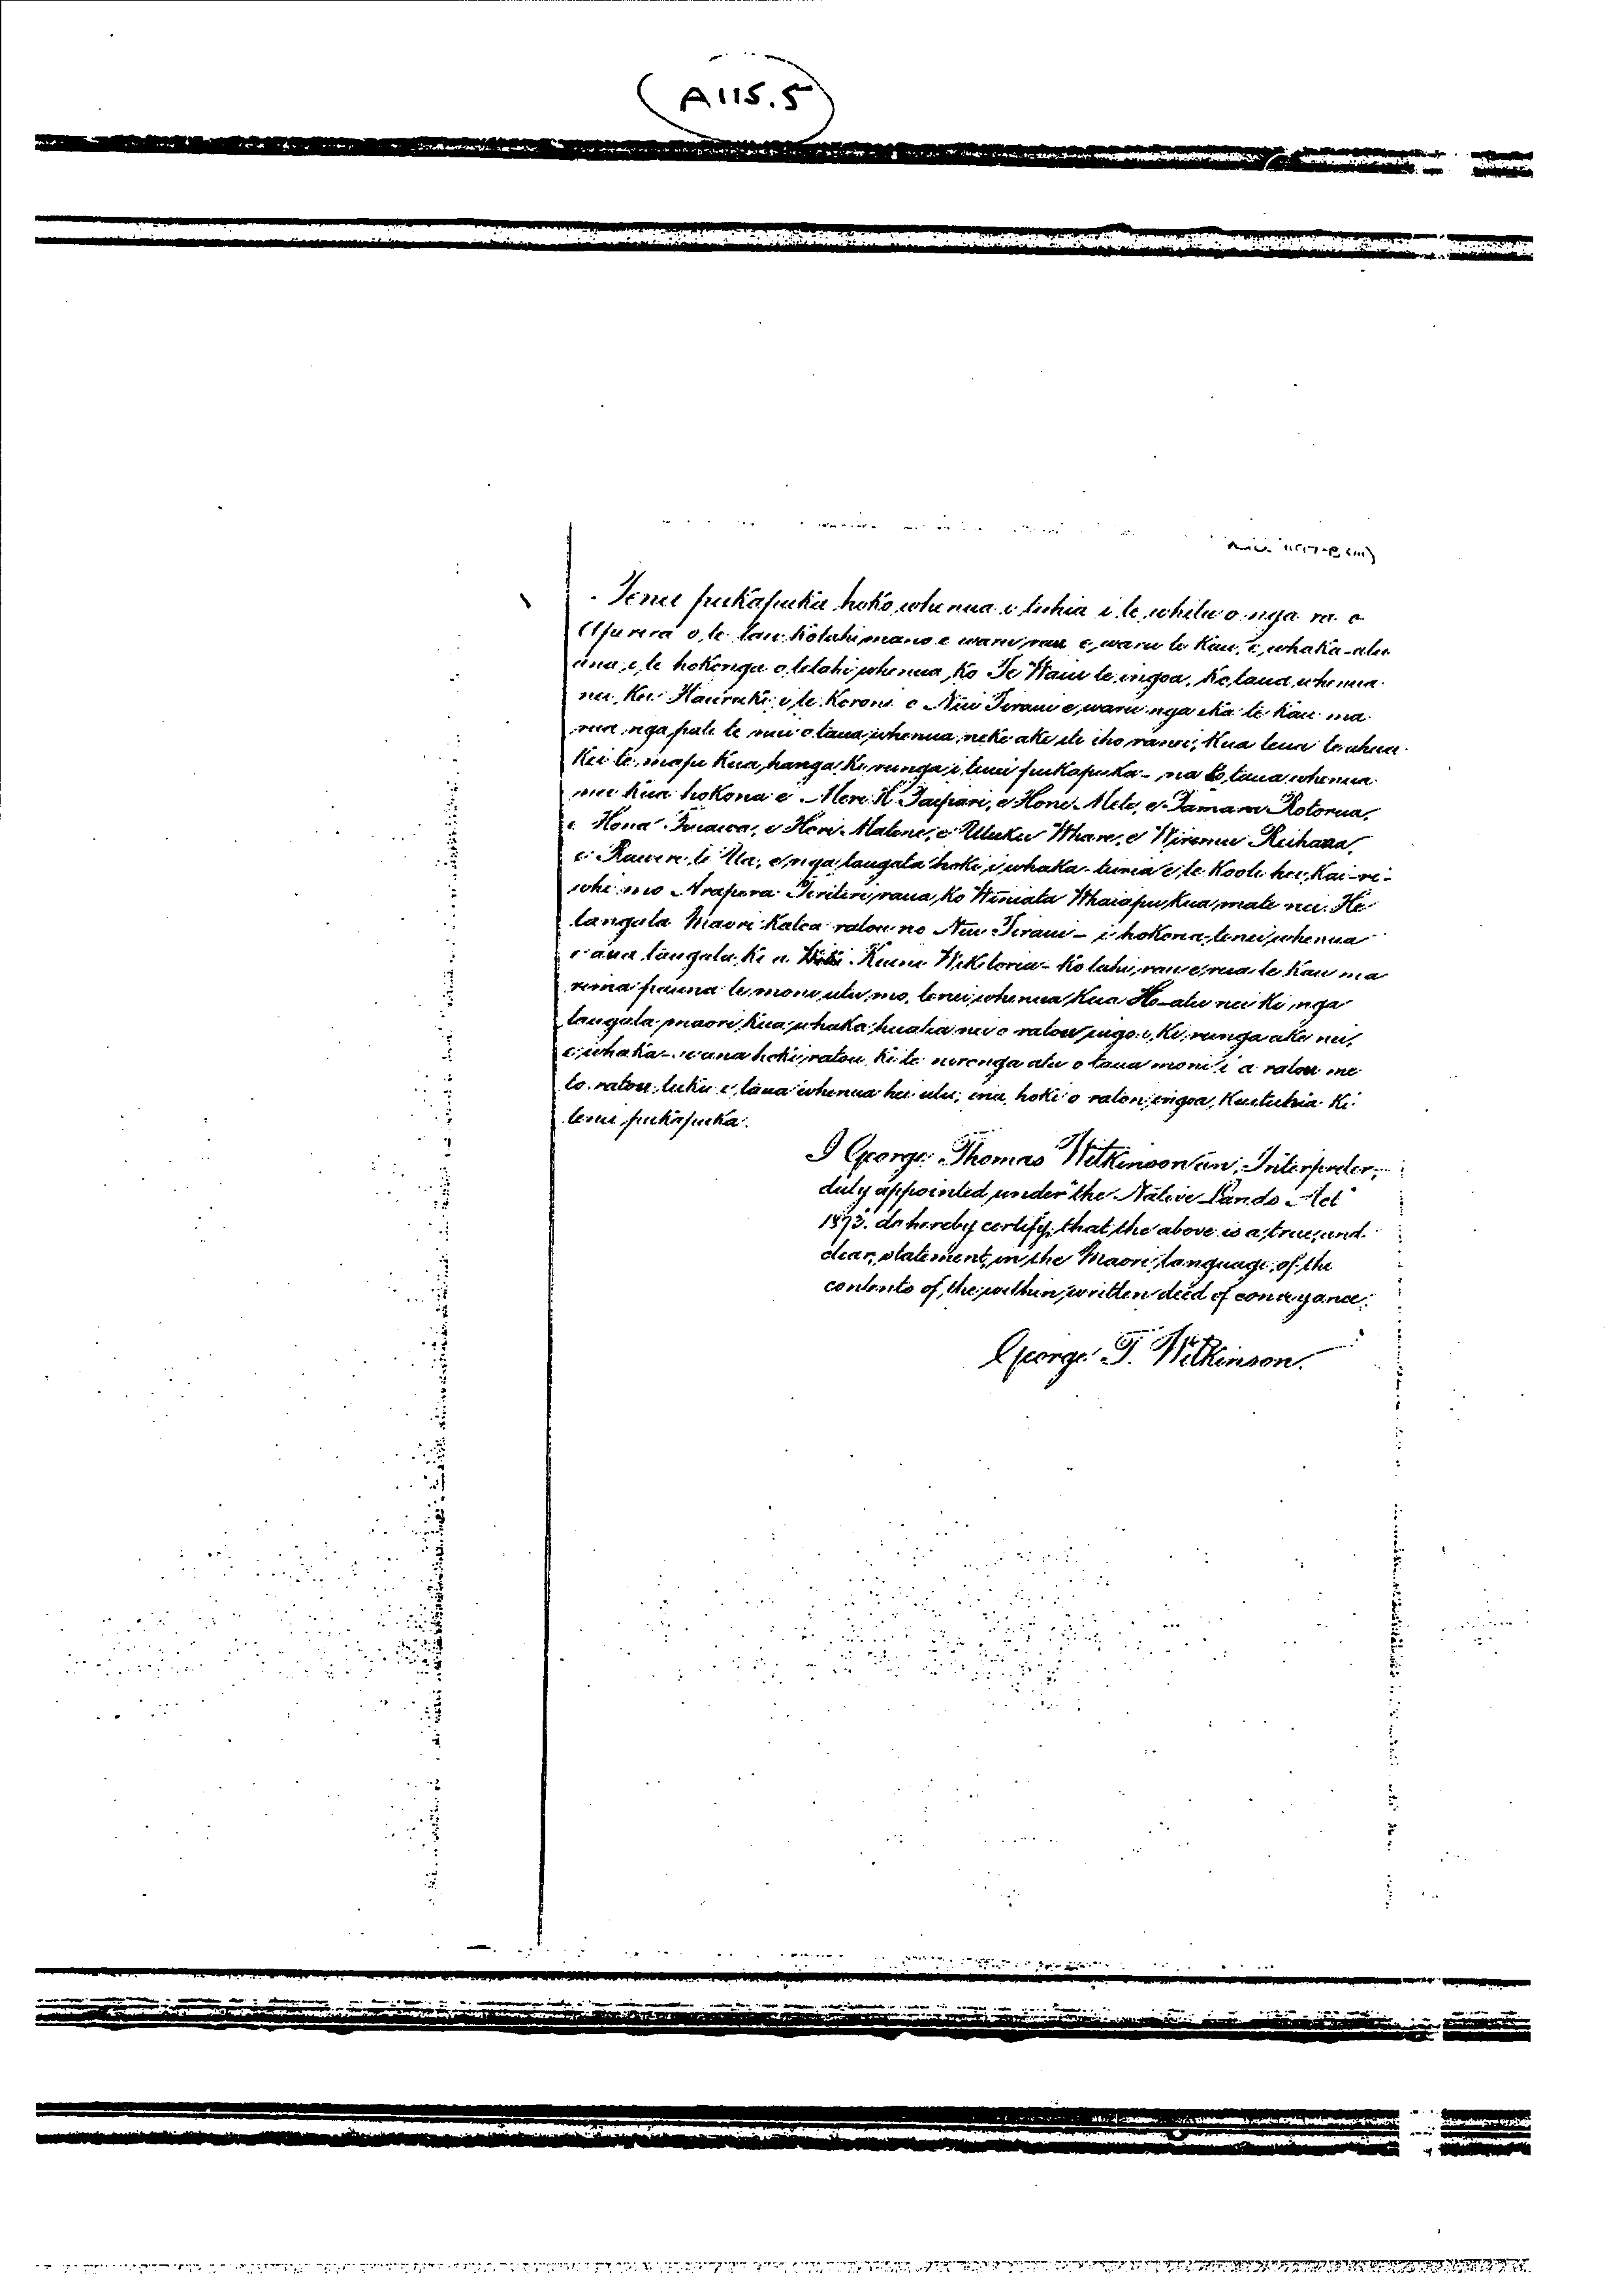 A115.5
Tenei pukapuka hoko whenua i tuhia i te whitu o nga ra o
Aperira o te tau kotahi mano e waru rau e waru te kau, e whaka-atu
ana i te hokonga o tetahi whenua, ko Te Waiu te ingoa, ko taua whenua
nei kei Hauraki i te Koroni o Niu Tirani e waru nga eka te kau ma
rua nga pate te nui o taua whenua neke ake iti iho ranei, kua tuia te ahua
kei te mapu kua hanga ki runga i tenei pukapuka - na ko taua whenua
nei kua hokona e Mere K Taipari, e Hone Mete, e Tamara Rotorua,
e Hona e Heri Matene, e Utuku Whare, e Wiremu Reihana,
e Rawiri te Ua, e nga tangata hoki i whaka-turia e te Kooti hei Kai-ri-
whi mo Arapera Teriteri raua ko Winiata Whaiapu kua mate nei. He
tangata Maori katoa ratou no Niu Tirani - i hokona tenei whenua
e aua tangata ki a Kuini Wikitoria - Kotahi rau e rua te kau ma
rima pauna te moni utu mo tenei whenua kua Ho-atu nei ki nga
tangata maori kua whaka huatia nei o ratou ingoa ki runga ake nei,
e whaka- ana hoki ratou ki te rironga atu o taua moni i a ratou me
to ratou tuku i taua whenua hei utu, ina hoki o ratou ingoa kua tuhia ki
tenei pukapuka.
I George Thomas Wilkinson an Interpreter,
duly appointed under "the Native Lands Act
1873" do hereby certify that the above is a true and
clear statement in the Maori language of the
contents of the within written deed of conveyance.
George T. Wilkinson.